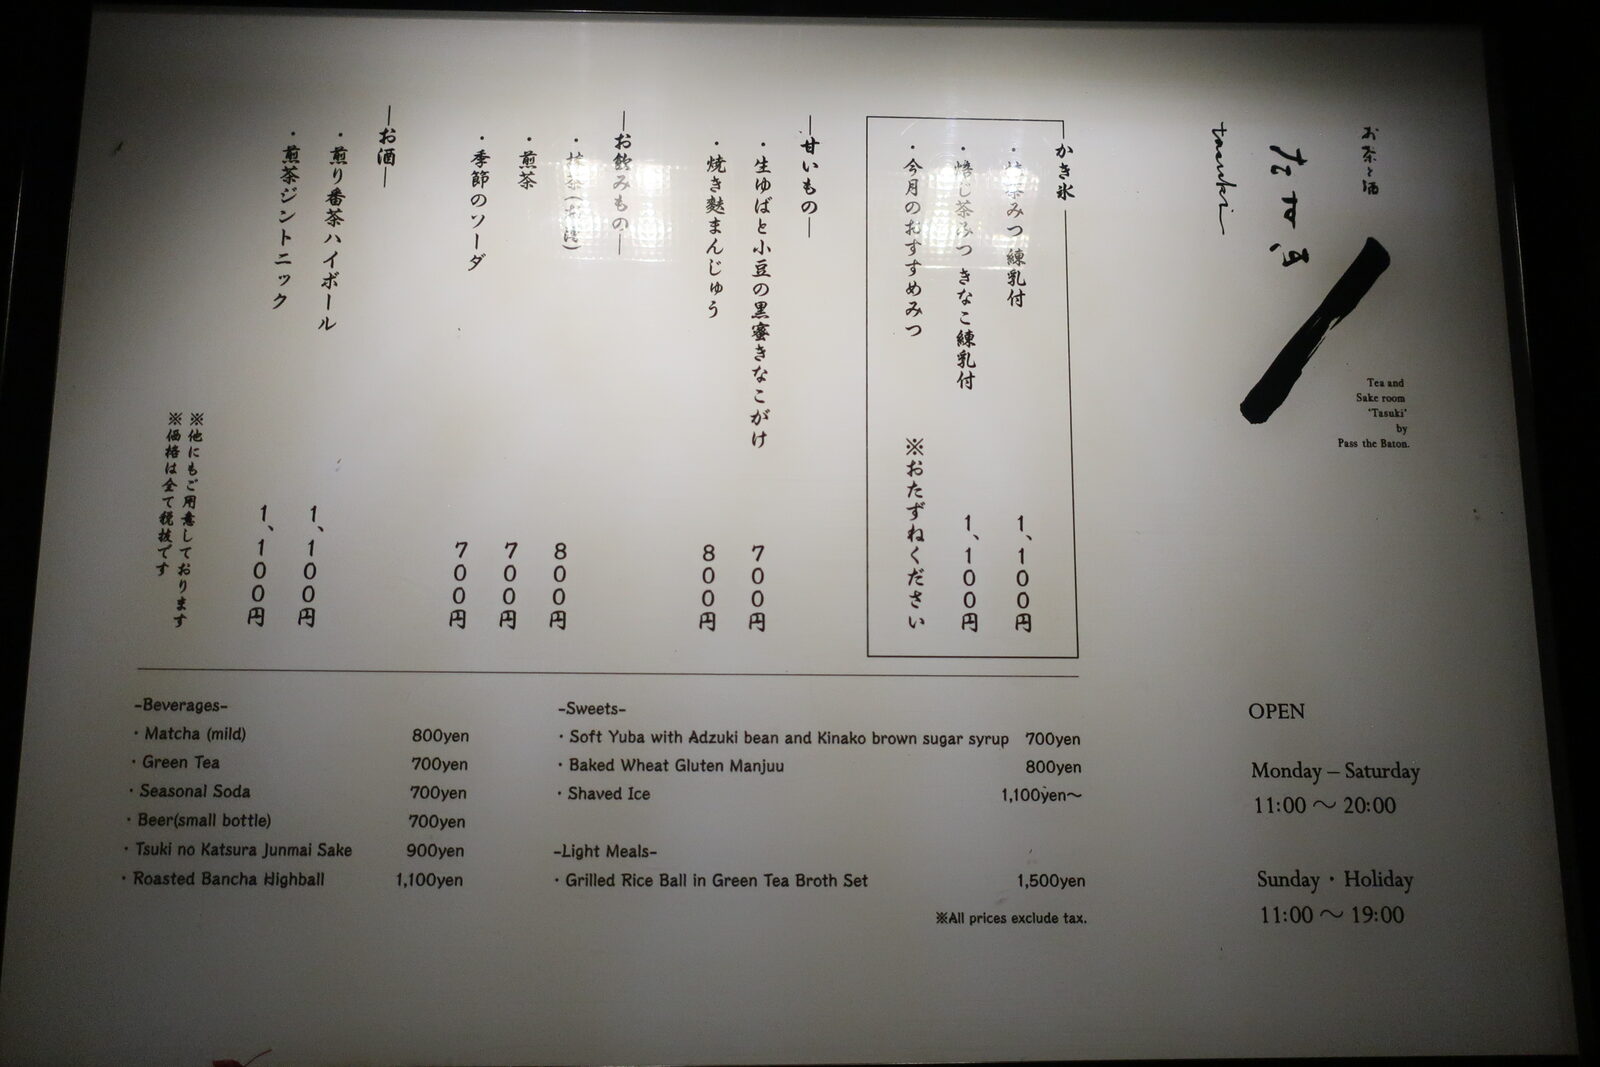 お茶と酒
たす㐂
tasuki
Tea and
Sake room
'Tasuki'
by
Pass the Baton.
かき氷
・抹茶みつ 練乳付 1、100円
・焙じ茶みつ きなこ練乳付 1、100円
・今月のおすすめみつ ※おたずねください
—甘いもの—
・生ゆばと小豆の黒蜜きなこがけ 700円
・焼き麩まんじゅう 800円
—お飲みもの—
・抹茶（お薄） 800円
・煎茶 700円
・季節のソーダ 700円
—お酒—
・煎り番茶ハイボール 1、100円
・煎茶ジントニック 1、100円
※他にもご用意しております
※価格は全て税抜です
-Beverages-
・Matcha (mild) 800yen
・Green Tea 700yen
・Seasonal Soda 700yen
・Beer(small bottle) 700yen
・Tsuki no Katsura Junmai Sake 900yen
・Roasted Bancha Highball 1,100yen
-Sweets-
・Soft Yuba with Adzuki bean and Kinako brown sugar syrup 700yen
・Baked Wheat Gluten Manjuu 800yen
・Shaved Ice 1,100yen～
-Light Meals-
・Grilled Rice Ball in Green Tea Broth Set 1,500yen
※All prices exclude tax.
OPEN
Monday – Saturday
11:00 ～ 20:00
Sunday・Holiday
11:00 ～ 19:00